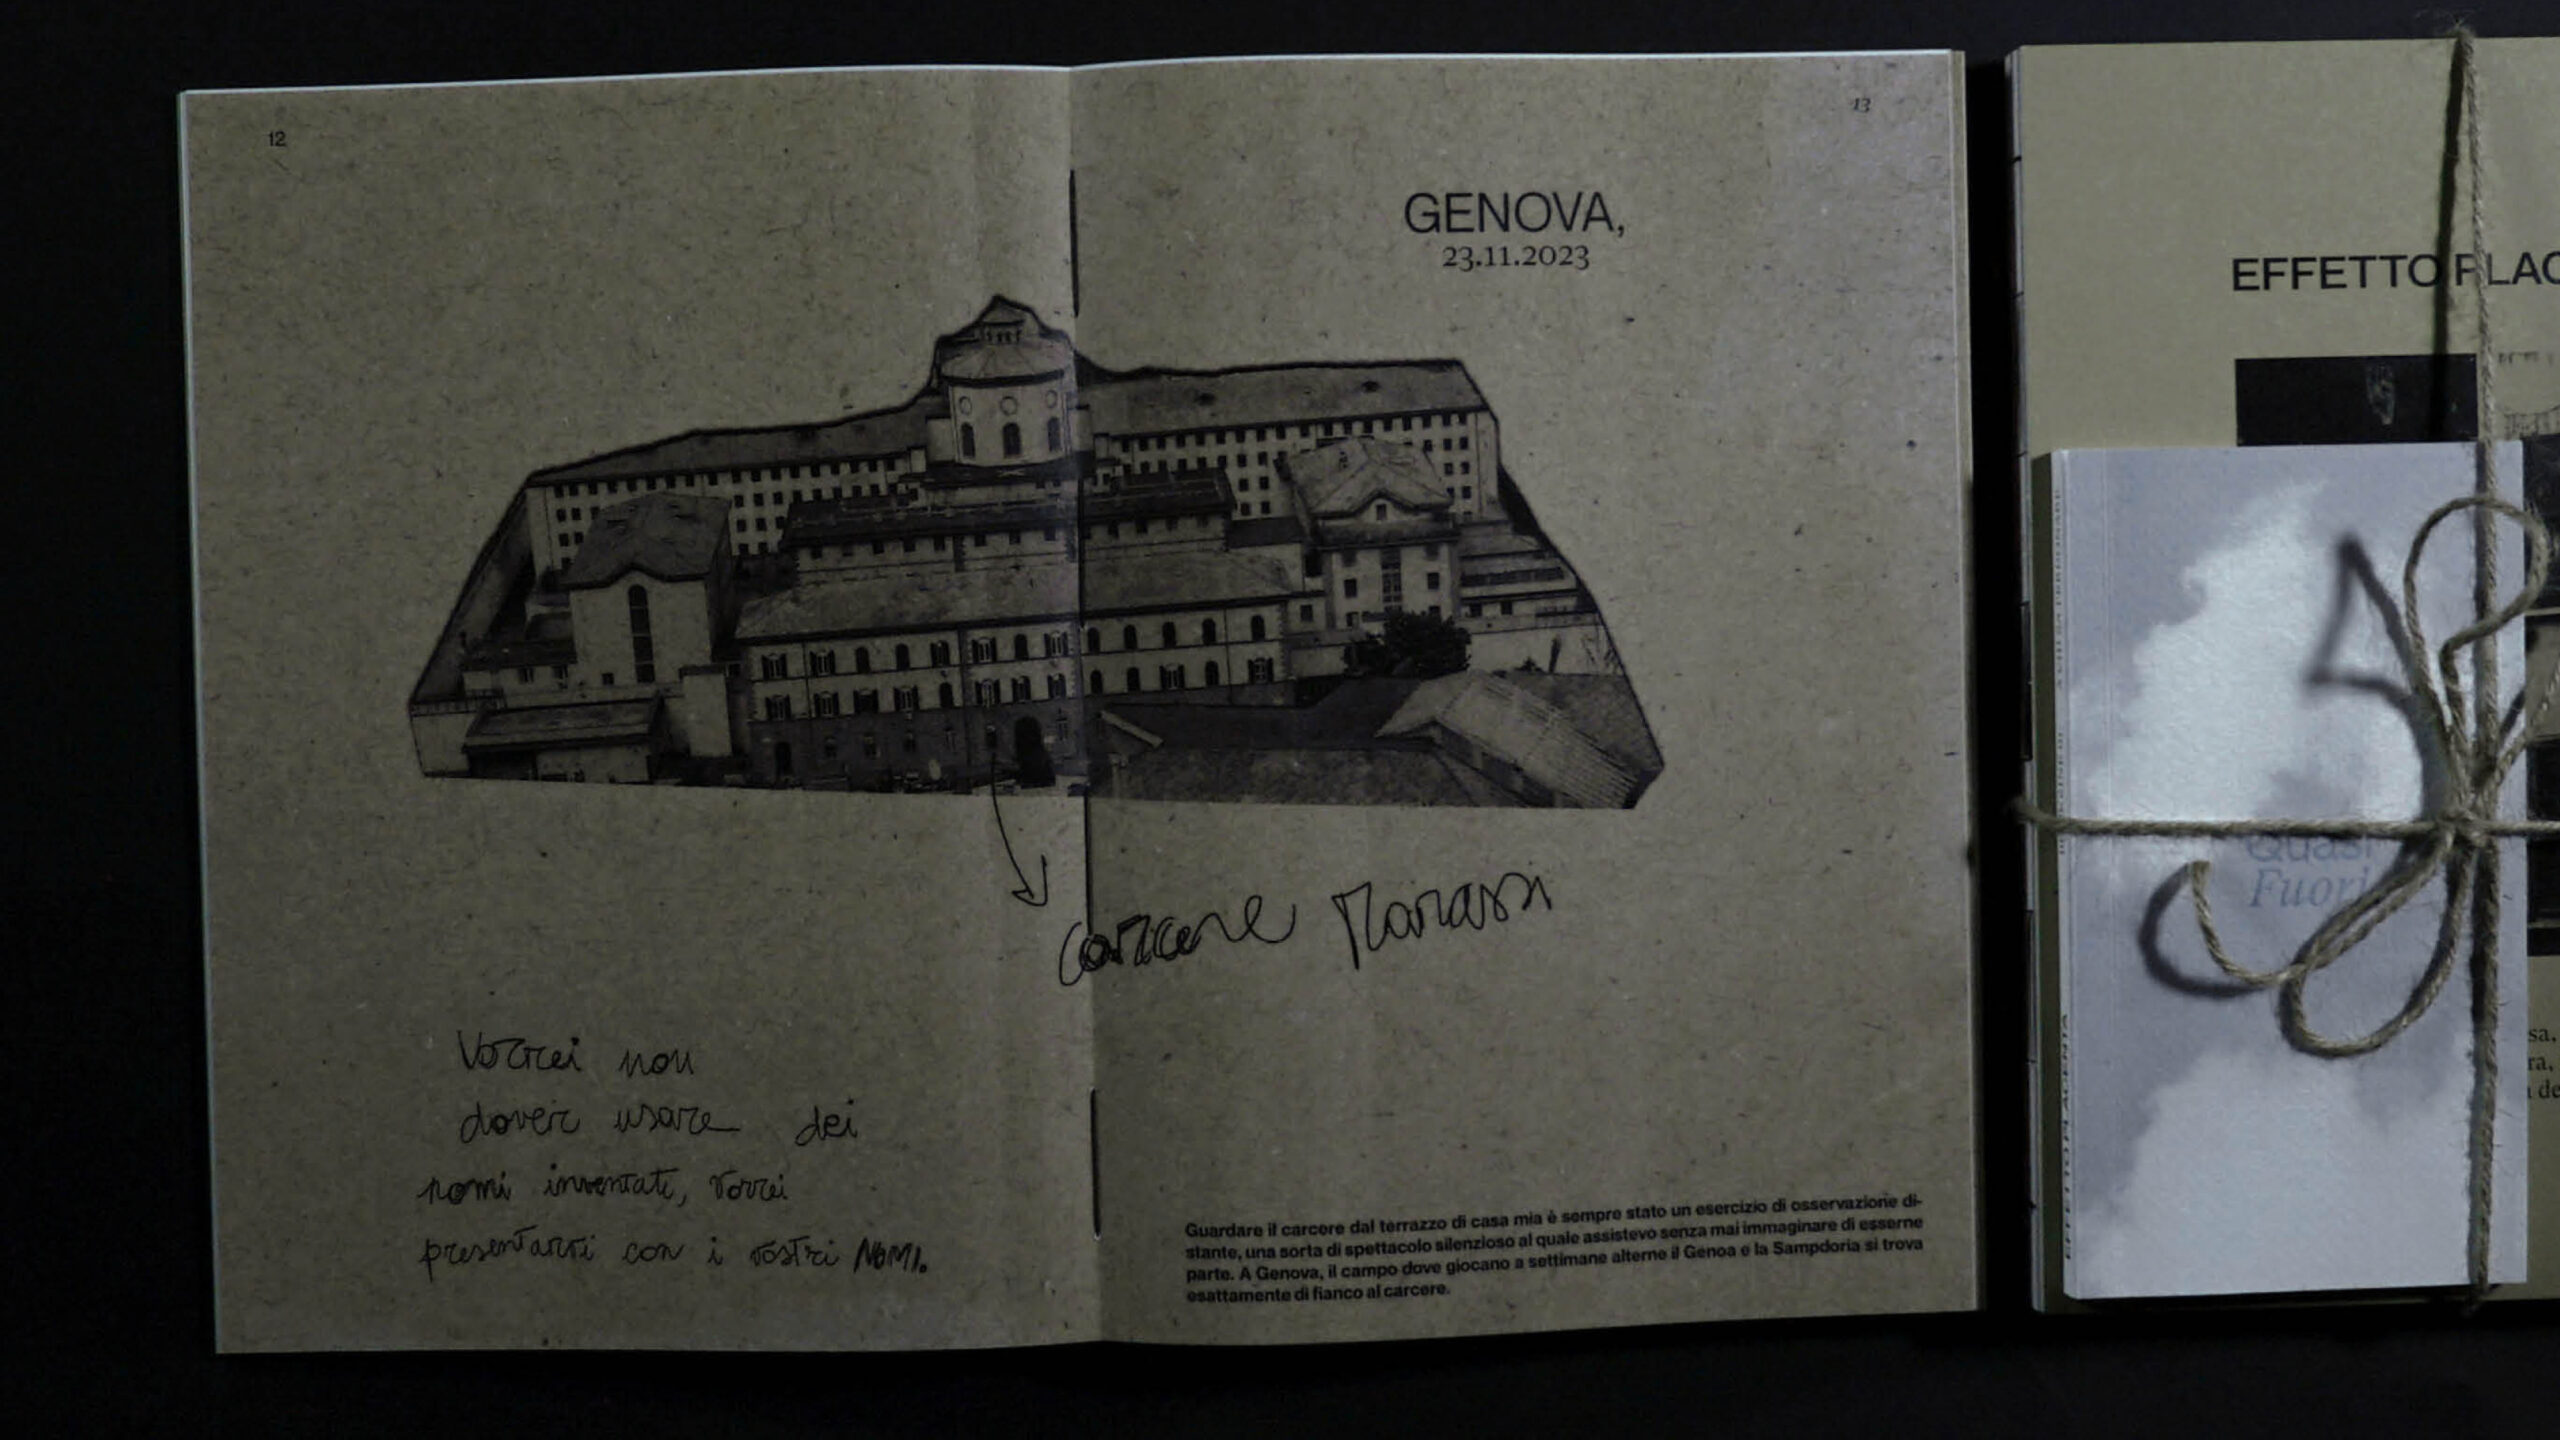 12
13
GENOVA,
23.11.2023
carcere Marassi
Vorrei non
dover usare dei
nomi inventati, vorrei
presentarvi con i vostri NOMI.
Guardare il carcere dal terrazzo di casa mia è sempre stato un esercizio di osservazione di-
stante, una sorta di spettacolo silenzioso al quale assistevo senza mai immaginare di esserne
parte. A Genova, il campo dove giocano a settimane alterne il Genoa e la Sampdoria si trova
esattamente di fianco al carcere.
EFFETTO PLAC
Quasi
Fuori
sa,
ra,
de
EFFETTO PLACENTA